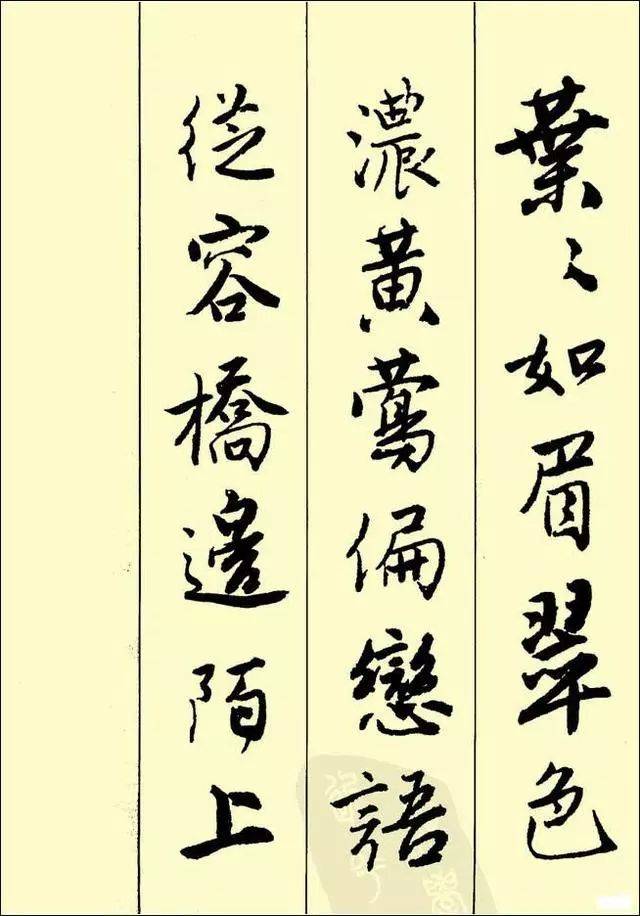 葉〻如眉翠色
濃黄鶯偏戀語
從容橋邊陌上